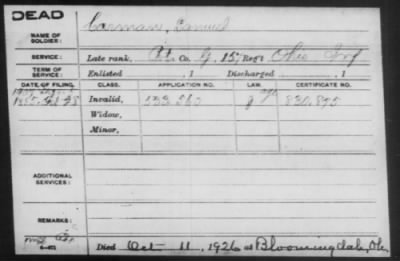 DEAD
NAME OF SOLDIER: Carman, Samuel
SERVICE: Late rank, Pvt Co. G, 157 Reg't Ohio Inf
TERM OF SERVICE: Enlisted , 1 Discharged , 1
DATE OF FILING. CLASS. APPLICATION NO. LAW. CERTIFICATE NO.
Invalid, 830,895
Widow,
Minor,
ADDITIONAL SERVICES:
REMARKS:
Died Oct 11, 1926 at Bloomingdale, Oh